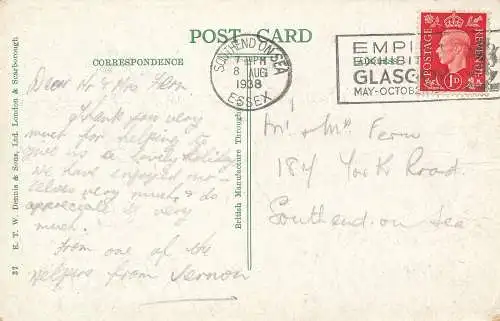 POST CARD
CORRESPONDENCE
SOUTHEND ON SEA
7 PM
8 AUG
1938
ESSEX
EMPIRE
EXHIBIT
GLASG
MAY-OCTOB
POSTAGE
REVENUE
1D
Dear Mr & Mrs Fern.
Thank you very
much for helping to
give us a lovely holiday
We have enjoyed our-
selves very much & do
appreciate it very
much.
From one of the
helpers from Vernon
Mr & Mrs Fern
184 York Road
Southend on Sea
British Manufacture Throughout
37 E. T. W. Dennis & Sons, Ltd. London & Scarborough